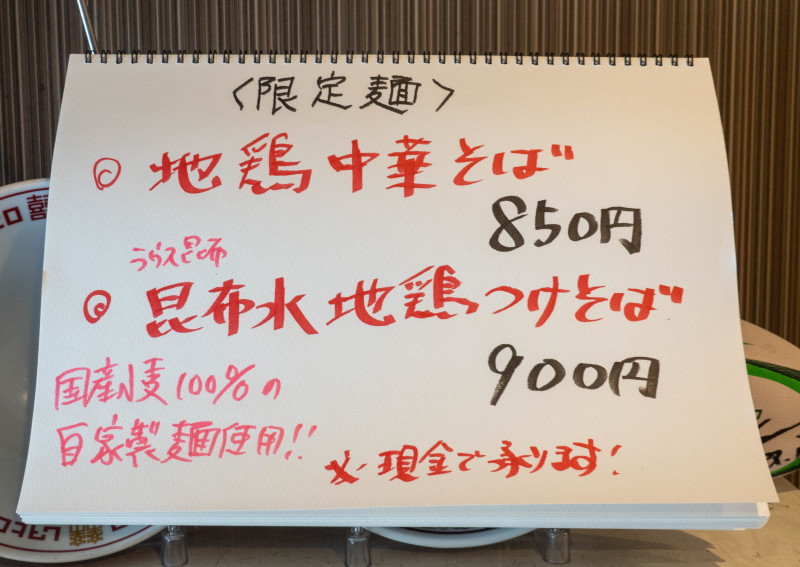 〈限定麺〉
◎ 地鶏中華そば
850円
うらス昆布
◎ 昆布水地鶏つけそば
900円
国産小麦100%の
自家製麺使用!!
※現金で承ります!